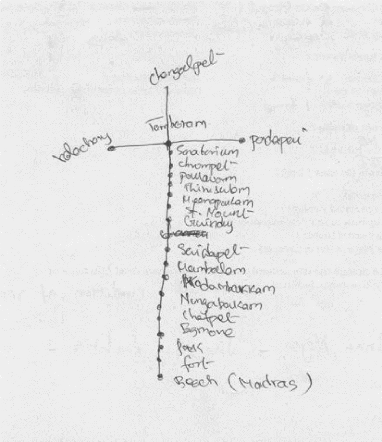 Chengalpet
Tambaram
Velachery
Padapai
Sanatorium
Chrompet
Pallavaram
Thirusulam
Meenapakam
St. Mount
Guindy
Saidapet
Mambalam
Kodambakkam
Nungabakam
Chetpet
Egmore
Park
fort
Beach (Madras)